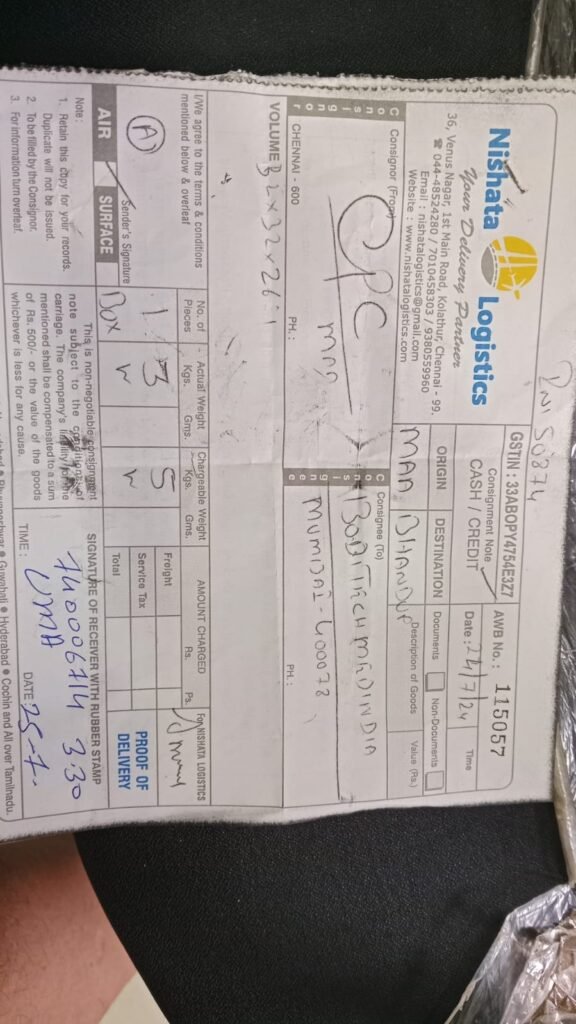 Nishata Logistics
Your Delivery Partner
36, Venus Nagar, 1st Main Road, Kolathur, Chennai - 99.
☎ 044-48524280 / 7010458303 / 9380559960
Email : nishatalogistics@gmail.com
Website : www.nishatalogistics.com
50874
GSTIN : 33ABOPY4754E3Z7
Consignment Note
CASH / CREDIT
AWB No. : 115057
Date : 24/7/24
Time
ORIGIN
DESTINATION
MAA
BHANDUP
Documents
Non-Documents
Description of Goods
Value (Rs.)
Consignor
Consignor (From)
CPC
MAA
CHENNAI - 600
PH. :
Consignee
Consignee (To)
BODITECH MED INDIA
MUMBAI - 400078
PH. :
VOLUME
I/We agree to the terms & conditions
mentioned below & overleaf
A
Sender's Signature
AIR
SURFACE
No. of
Pieces
1
Box
Actual Weight
Kgs.
Gms.
3
Chargeable Weight
Kgs.
Gms.
5
AMOUNT CHARGED
Rs.
Ps.
Freight
Service Tax
Total
For NISHATA LOGISTICS
PROOF OF
DELIVERY
Note :
1. Retain this copy for your records.
Duplicate will not be issued.
2. To be filled by the Consignor.
3. For information turn overleaf.
This is non-negotiable consignment
note subject to the conditions of
carriage. The company's liability for the
mentioned shall be compensated to a sum
of Rs. 500/- or the value of the goods
whichever is less for any cause.
SIGNATURE OF RECEIVER WITH RUBBER STAMP
740006714 3.30
UMA
TIME :
DATE 25-7.
Bhuvaneshwar ● Guwahati ● Hyderabad ● Cochin and All over Tamilnadu.